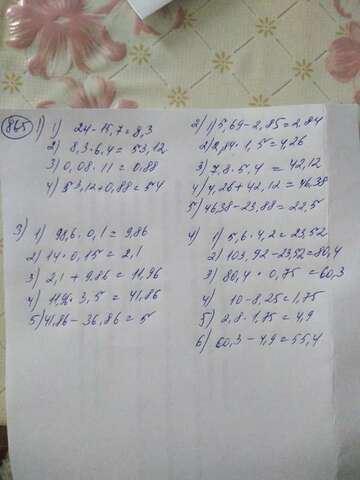 865
1) 1) 24-15,7=8,3
2) 8,3·6,4=53,12
3) 0,08·11=0,88
4) 53,12+0,88=54
2) 1) 5,69-2,85=2,84
2) 2,84·1,5=4,26
3) 7,8·5,4=42,12
4) 4,26+42,12=46,38
5) 46,38-23,88=22,5
3) 1) 98,6·0,1=9,86
2) 14·0,15=2,1
3) 2,1+9,86=11,96
4) 11,96·3,5=41,86
5) 41,86-36,86=5
4) 1) 5,6·4,2=23,52
2) 103,92-23,52=80,4
3) 80,4·0,75=60,3
4) 10-8,25=1,75
5) 2,8·1,75=4,9
6) 60,3-4,9=55,4